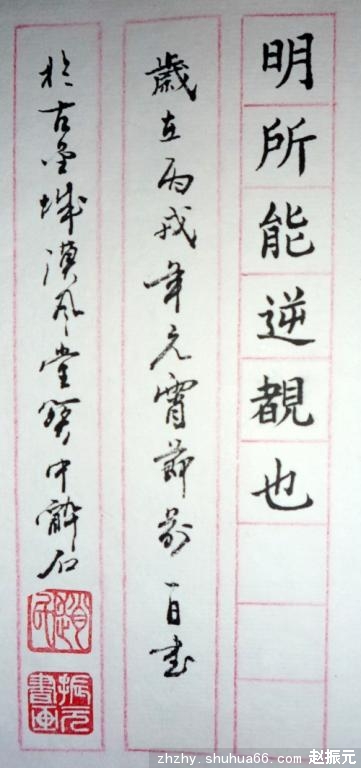 明所能逆覩也
歲在丙戌年元宵節前一日書
於古金城漢風堂中醉石
振元書画
zhzhy.shuhua66.com 赵振元